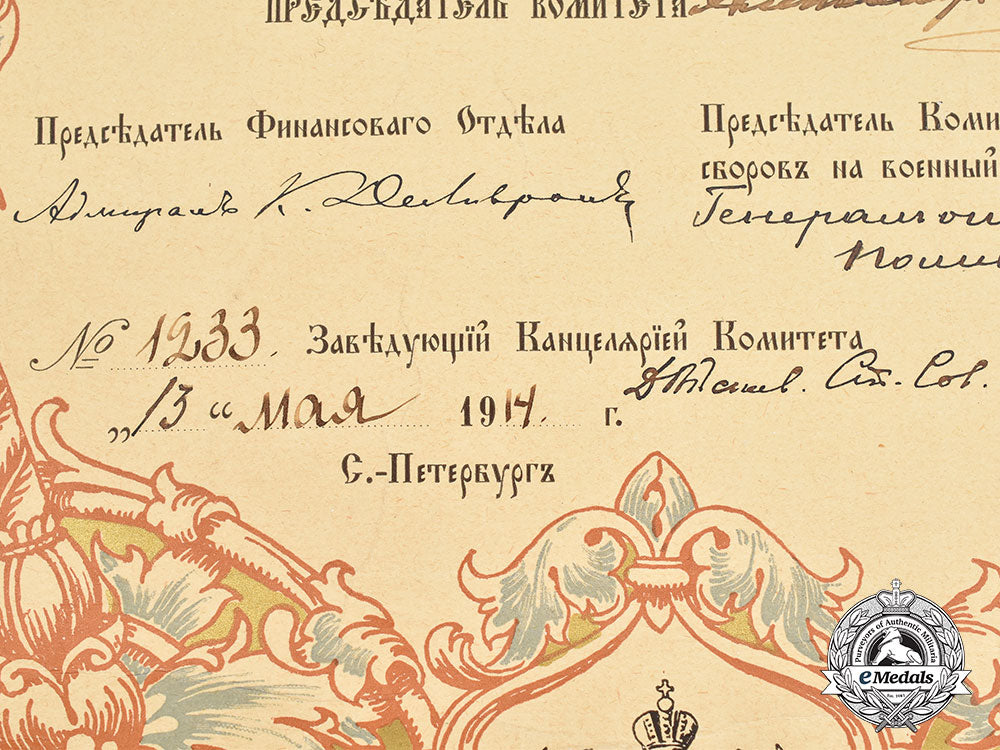 Предсѣдатель Комитета
Предсѣдатель Финансоваго Отдѣла
Адмиралъ К. Деливронъ
Предсѣдатель Коми
сборовъ на военный
Генералъ
№ 1233. Завѣдующій Канцеляріей Комитета
Ст. Сов.
„13“ мая 1914. г.
С.-Петербургъ
Purveyors of Authentic Militaria
eMedals